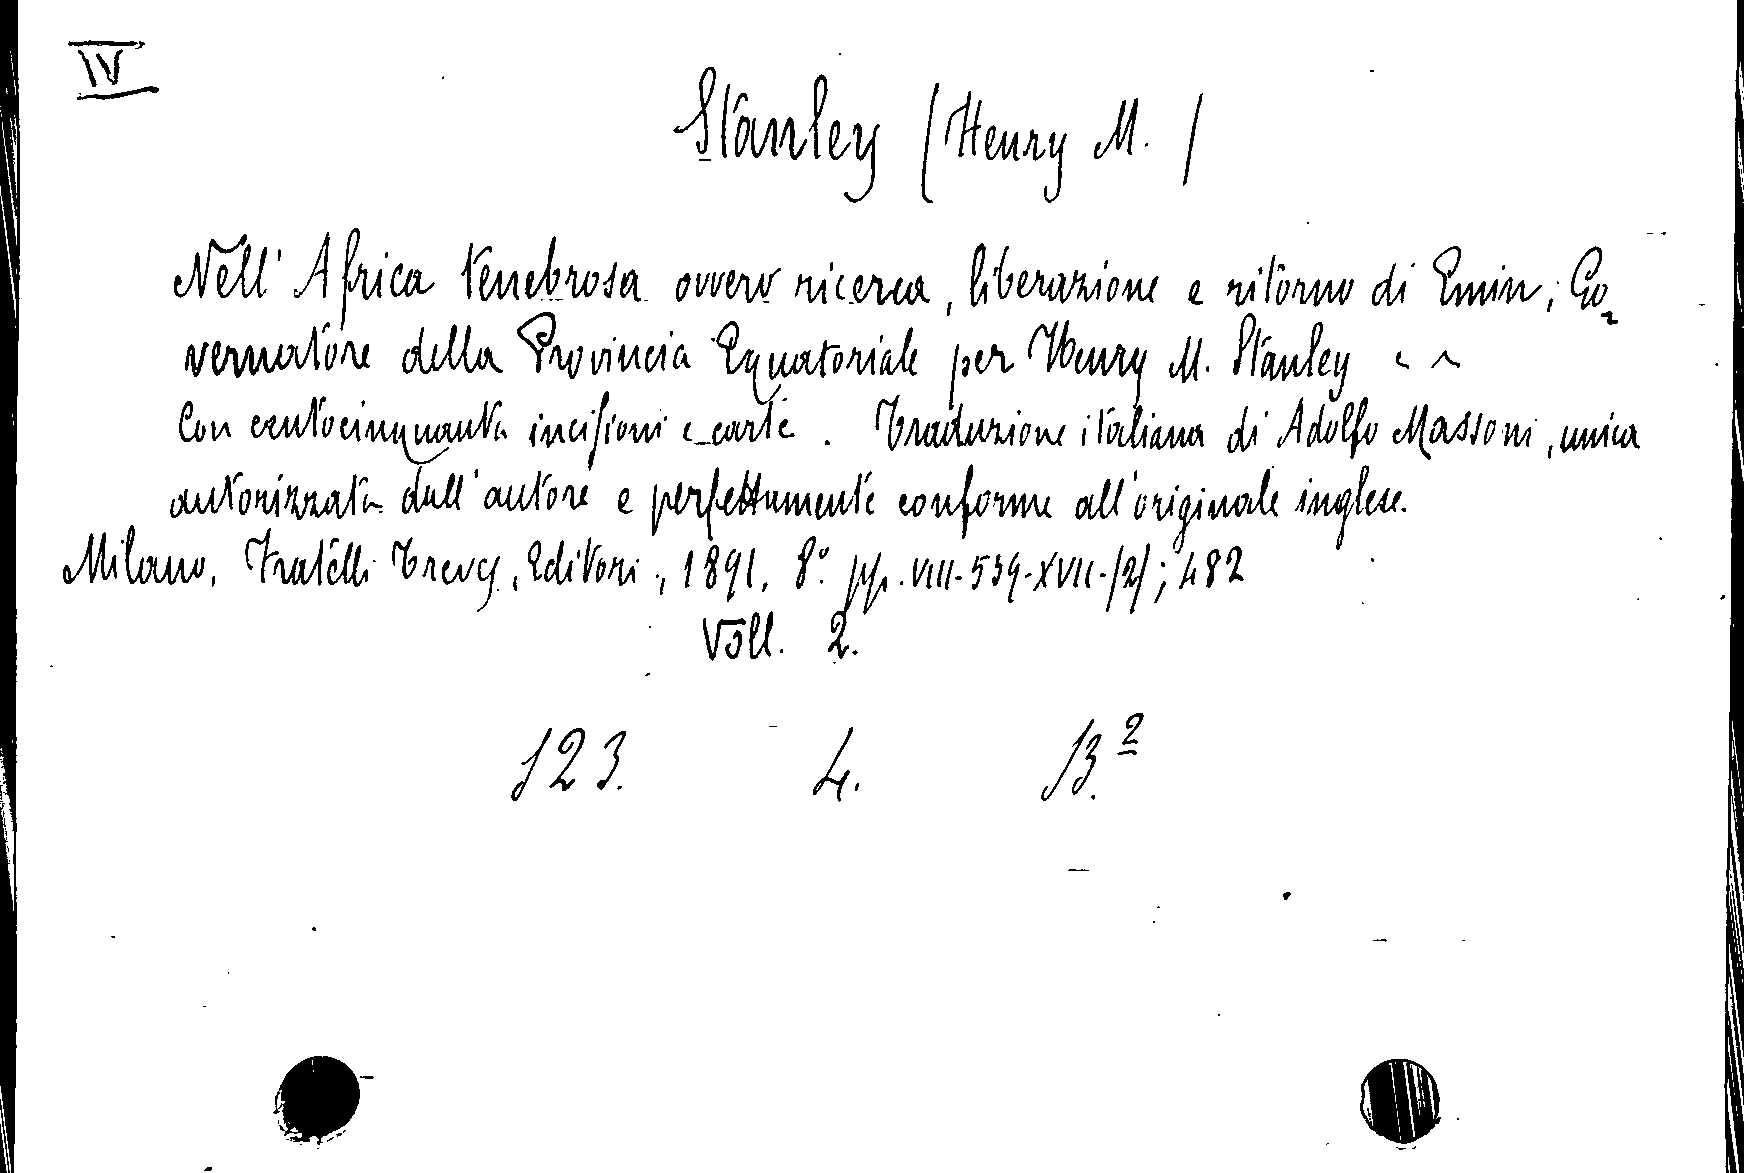 IV
Stanley (Henry M.)
Nell'Africa tenebrosa ovvero ricerca, liberazione e ritorno di Emin, Go-
vernatore della Provincia Equatoriale per Henry M. Stanley
Con centocinquanta incisioni e carte. Traduzione italiana di Adolfo Massoni, unica
autorizzata dall'autore e perfettamente conforme all'originale inglese.
Milano, Fratelli Treves, Editori, 1891. 8º pp. VIII-539-XVII-(2); 482
Voll. 2.
123. 4. B.2